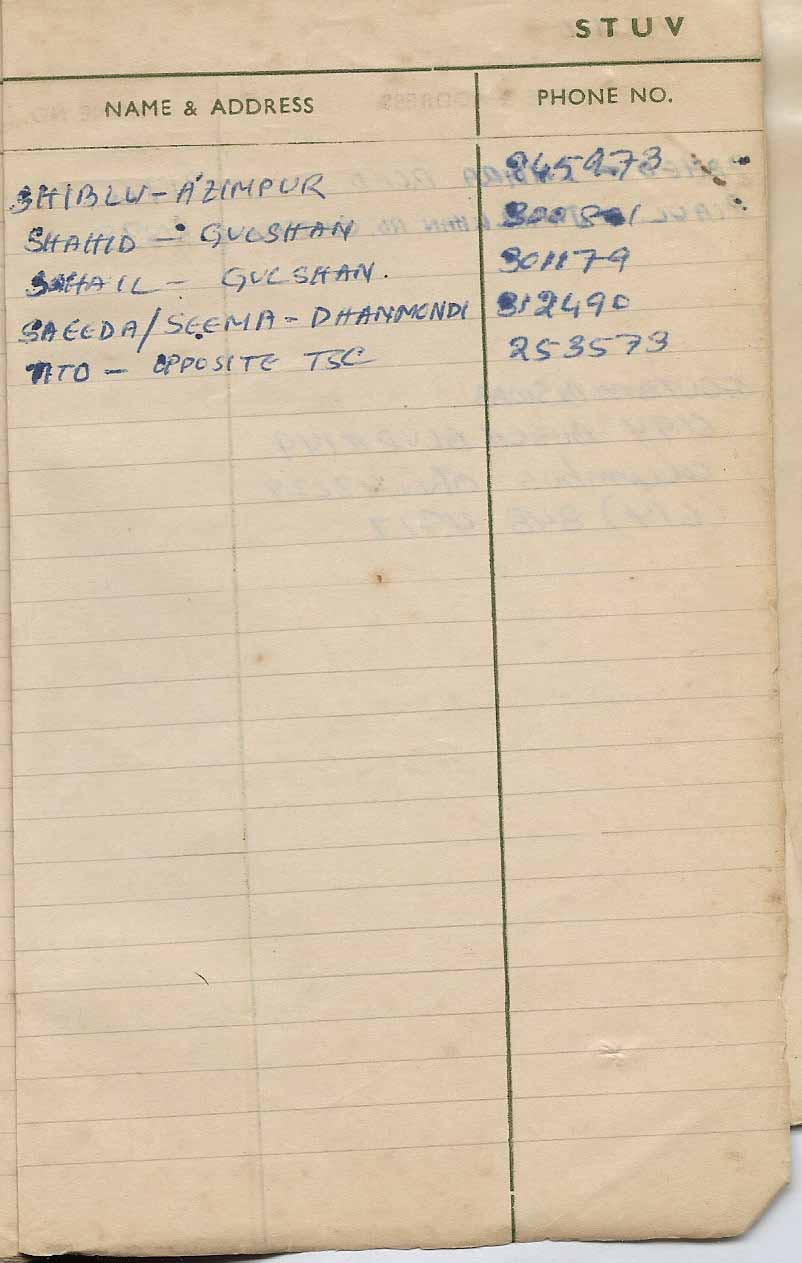 STUV
NAME & ADDRESS PHONE NO.
SHIBLU - AZIMPUR 245973
SHAHID - GULSHAN
SOHAIL - GULSHAN. 301179
SAEEDA/SEEMA - DHANMONDI 312490
TITO - OPPOSITE TSC 253573